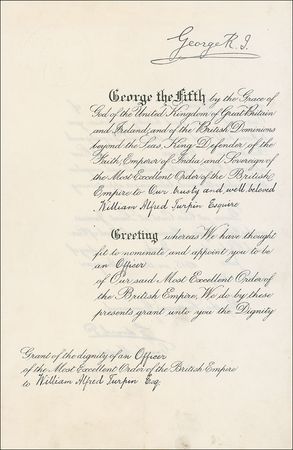 George R. I.
George the Fifth by the Grace of
God of the United Kingdom of Great Britain
and Ireland and of the British Dominions
beyond the Seas, King Defender of the
Faith, Emperor of India and Sovereign of
the Most Excellent Order of the British
Empire to Our trusty and well beloved
William Alfred Turpin Esquire
Greeting whereas We have thought
fit to nominate and appoint you to be
an Officer
of Our said Most Excellent Order of
the British Empire, We do by these
presents grant unto you the Dignity
Grant of the dignity of an Officer
of the Most Excellent Order of the British Empire
to William Alfred Turpin Esq.